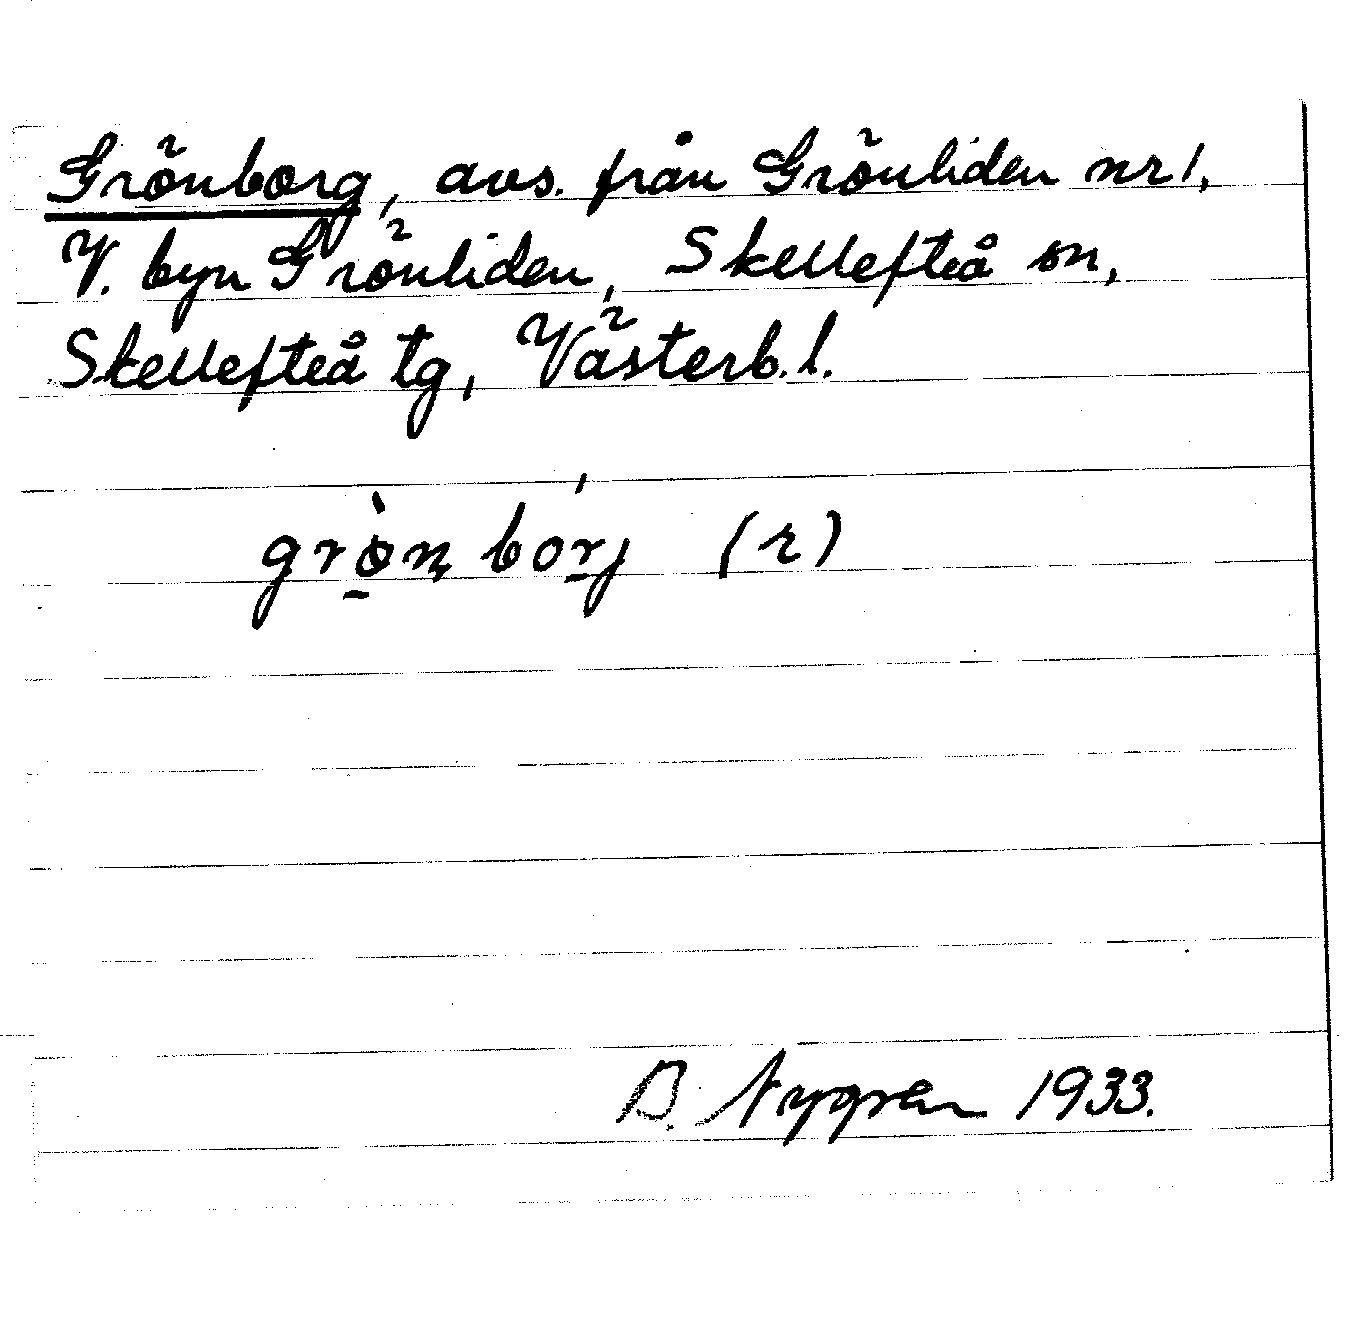 Grönborg, avs. från Grönliden nr 1,
V. byn Grönliden, Skellefteå sn,
Skellefteå tg, Västerb. l.
grø̀n bórj (r)
B. Nygren 1933.